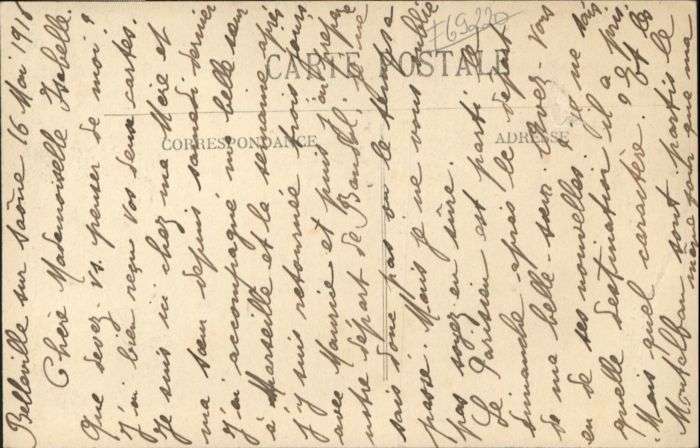 169220
CARTE POSTALE
CORRESPONDANCE
ADRESSE
Belleville sur Saône 16 Mai 1918
Chère Mademoiselle Isabelle.
Que devez-vs. penser de moi?
J'ai bien reçu vos deux cartes.
Je suis ici chez ma Mère et
ma sœur depuis samedi dernier
J'ai accompagné ma belle sœur
à Marseille et la semaine après
j'y suis retournée trois jours
avec Maurice et puis j'ai préparé
notre départ de Bandol, je ne
sais donc pas où le temps a
passé. Mais je ne vous oublie
pas soyez en sûre.
Le Parisien est parti le
dimanche après le départ
de ma belle-sœur. Avez-vous
eu de ses nouvelles. Je ne sais
quelle destination il a pris.
Mais quel caractère. Et les
Montalban sont partis le